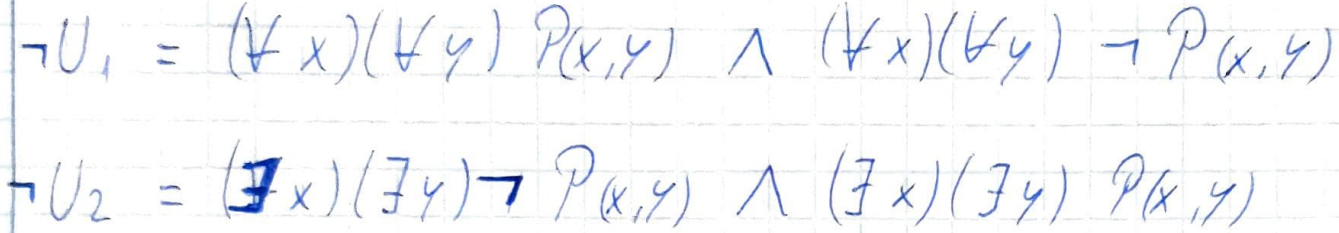 ¬U₁ = (∀x)(∀y) P(x,y) ∧ (∀x)(∀y) ¬P(x,y)
¬U₂ = (∃x)(∃y)¬P(x,y) ∧ (∃x)(∃y) P(x,y)